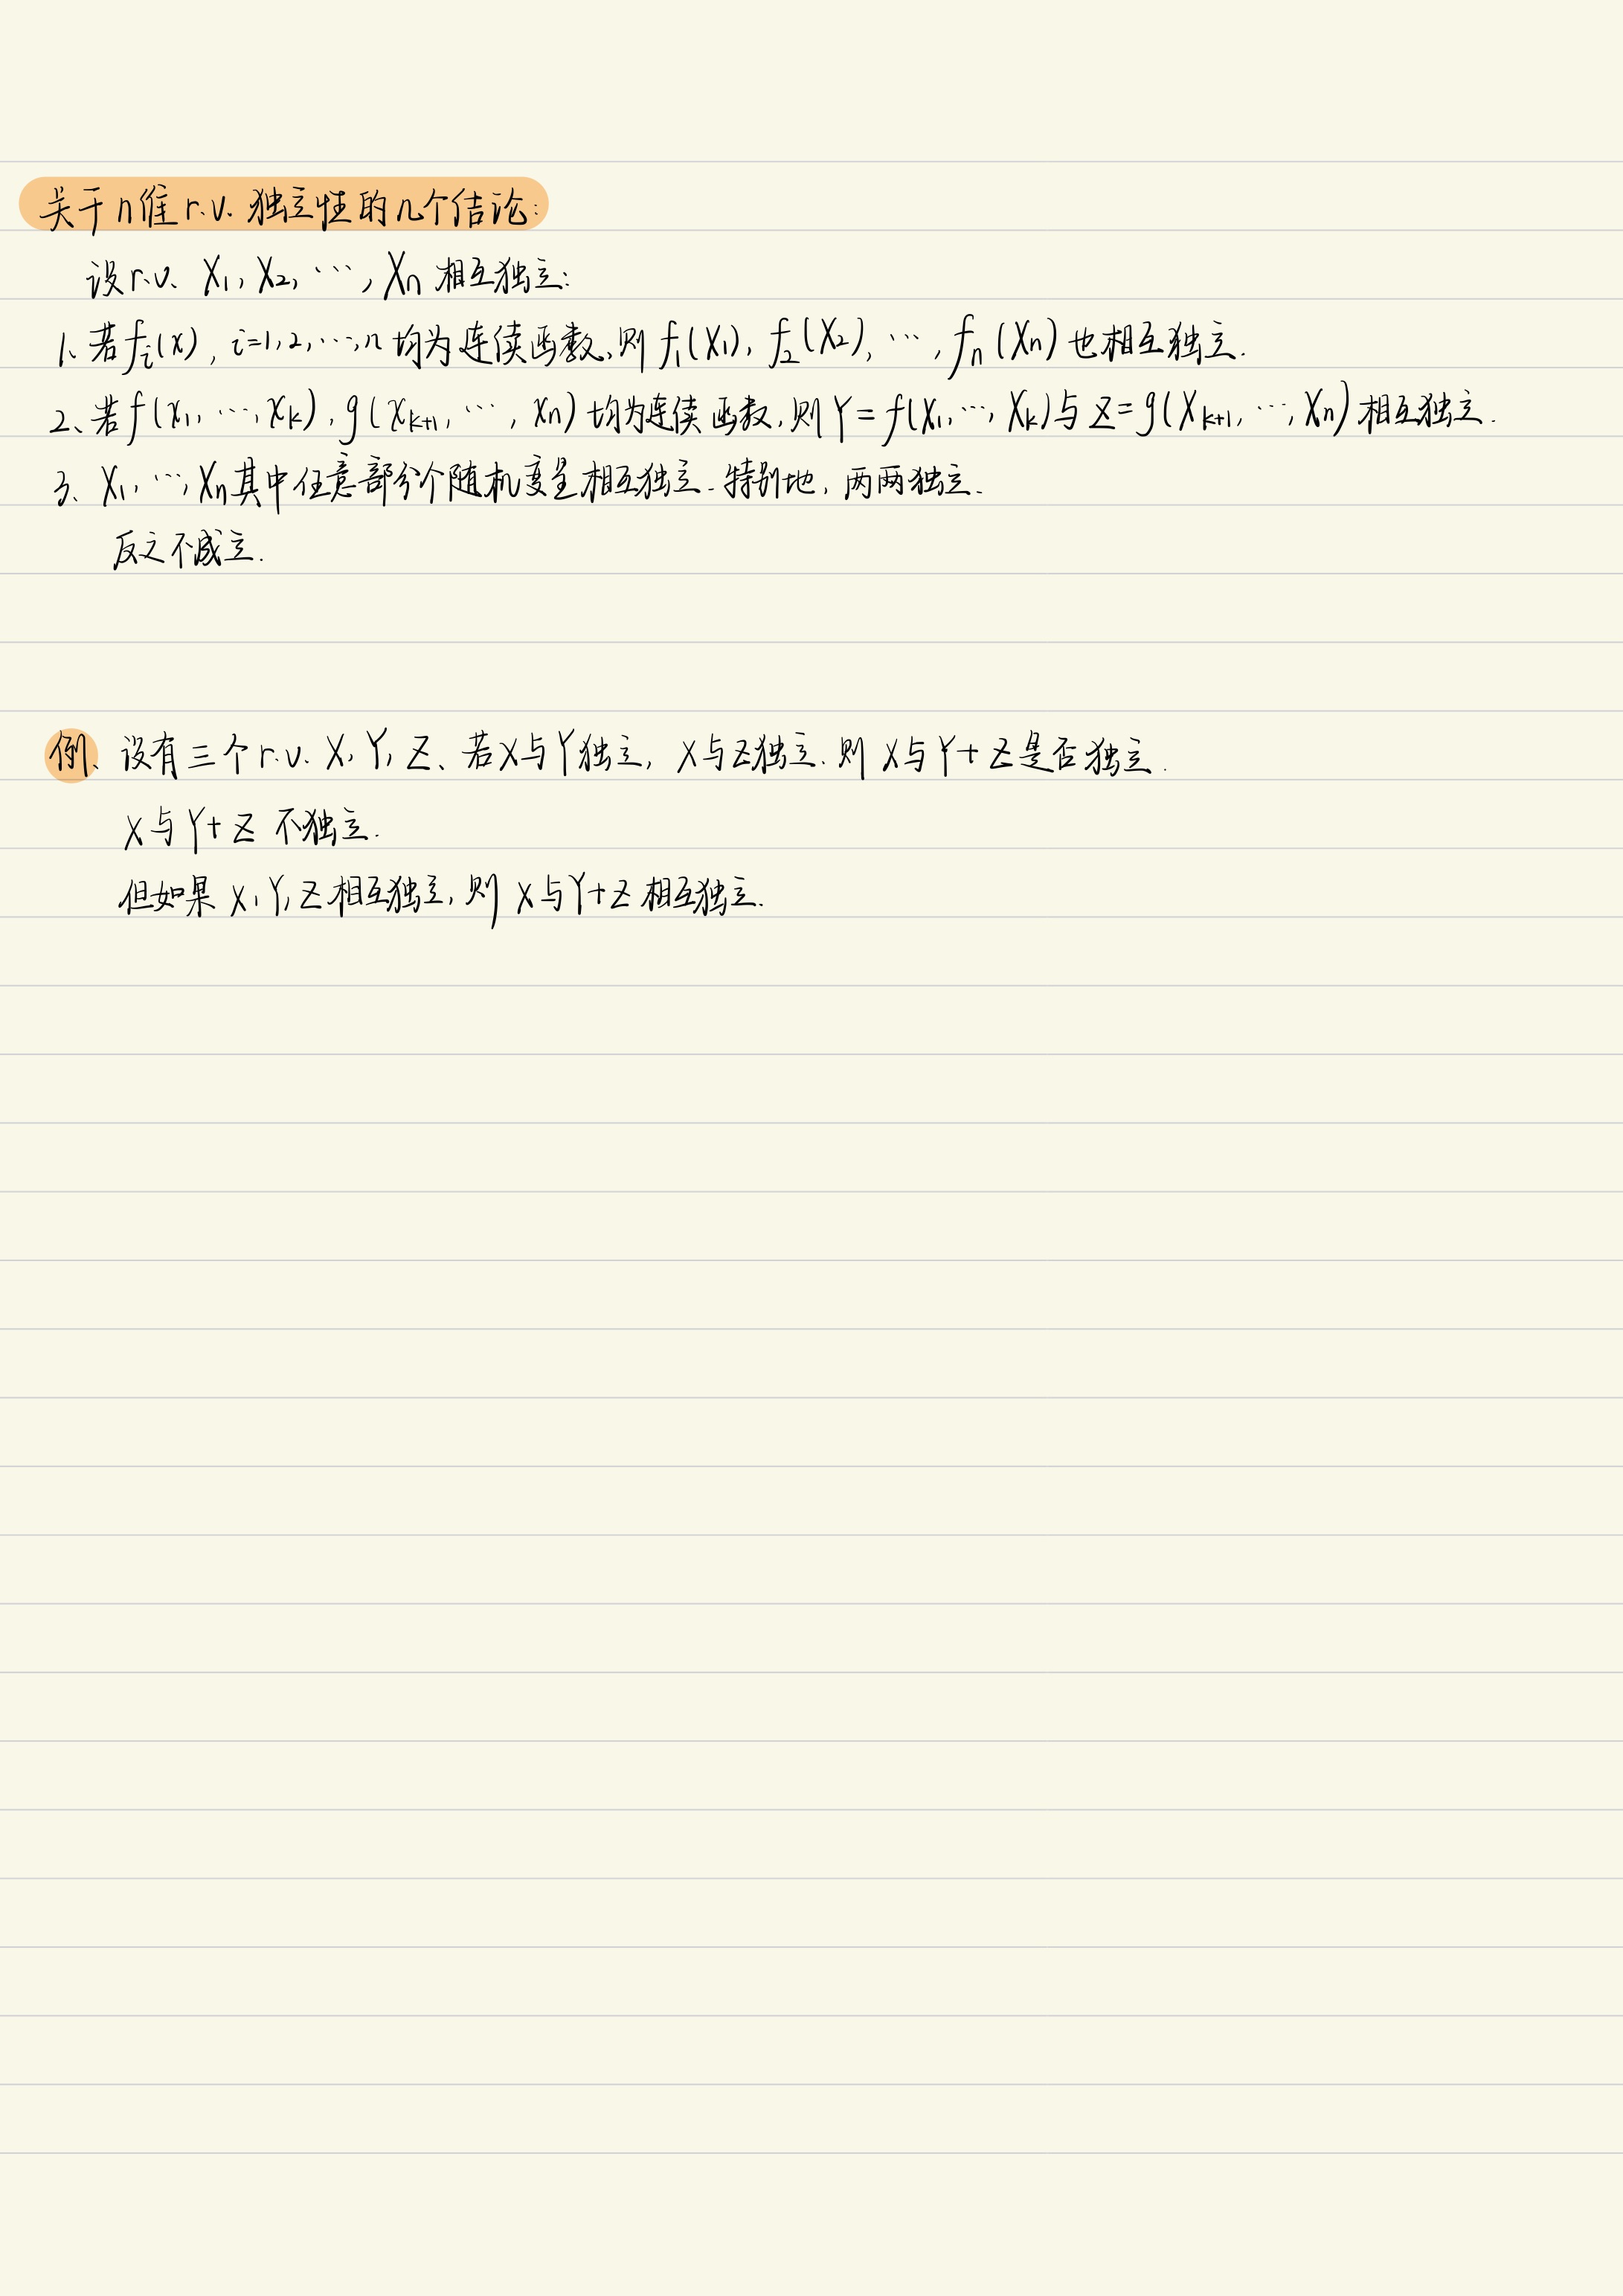 关于n维r.v.独立性的几个结论:
设r.v. X₁, X₂, ⋯, Xₙ 相互独立:
1、若fᵢ(x), i=1,2,⋯,n 均为连续函数,则 f₁(X₁), f₂(X₂), ⋯, fₙ(Xₙ) 也相互独立.
2、若f(x₁, ⋯, xₖ), g(xₖ₊₁, ⋯, xₙ) 均为连续函数,则Y=f(X₁, ⋯, Xₖ)与Z=g(Xₖ₊₁, ⋯, Xₙ)相互独立.
3、X₁, ⋯, Xₙ其中任意部分个随机变量相互独立.特别地, 两两独立.
反之不成立.
例、设有三个r.v. X, Y, Z、若X与Y独立, X与Z独立.则 X与Y+Z是否独立.
X与Y+Z 不独立.
但如果 X, Y, Z相互独立,则 X与Y+Z 相互独立.